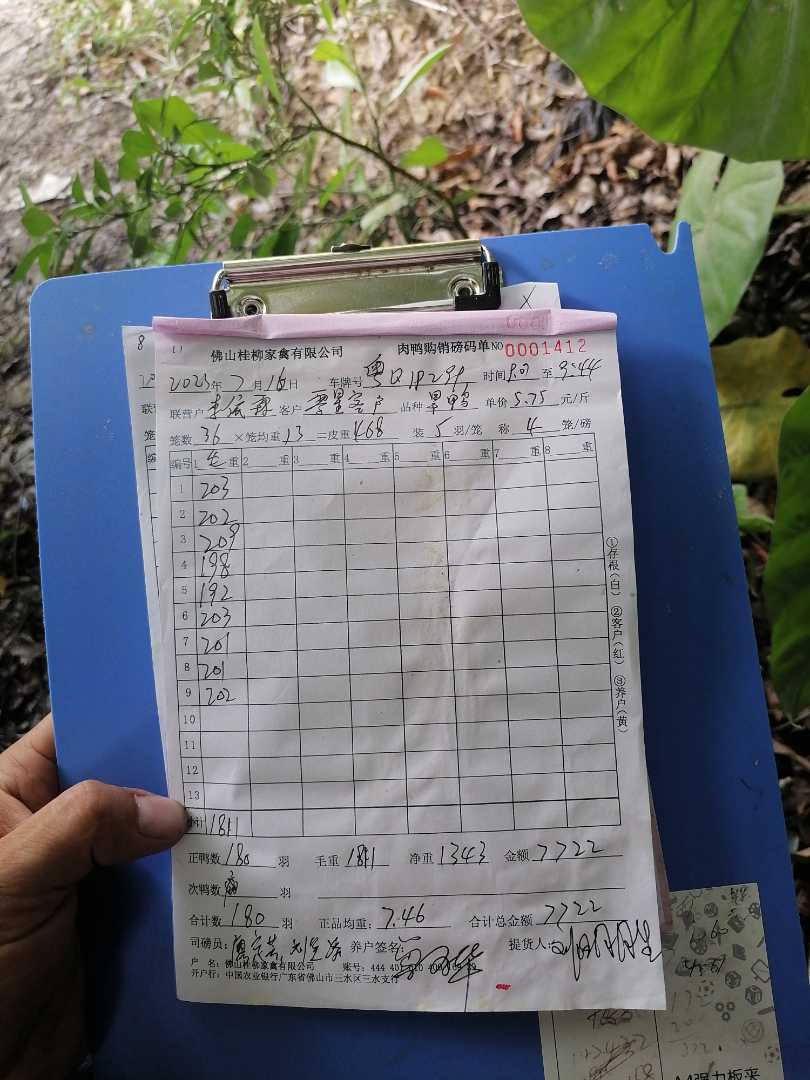 佛山桂柳家禽有限公司 肉鸭购销磅码单 NO 0001412
2023年7月16日 车牌号 时间 至 9:44
联营户 客户 零星客户 品种 单价 5.75 元/斤
笼数 36 ×笼均重 13 =皮重 468 装 5 羽/笼 称 4 笼/磅
编号 1 毛 重 2 重 3 重 4 重 5 重 6 重 7 重 8 重
1 203
2 202
3 209
4 198
5 192
6 203
7 201
8 201
9 202
10
11
12
13
1811
正鸭数 180 羽 毛重 1811 净重 1343 金额 7722
次鸭数 羽
合计数 180 羽 正品均重: 7.46 合计总金额 7722
司磅员: 养户签名: 提货人:
户 名: 佛山桂柳家禽有限公司 账号: 444
开户行: 中国农业银行广东省佛山市三水区三水支行
①存根(白) ②客户(红) ③养户(黄)